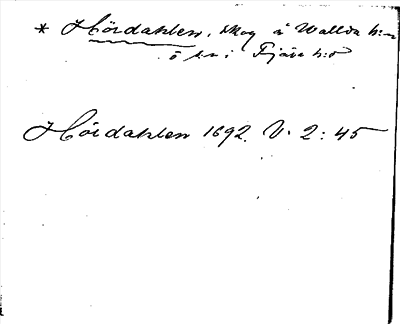 * Hördahlen, skog å Wallda h:n
ö sn i Fjäre h:d
Hördahlen 1692. V. 2:45